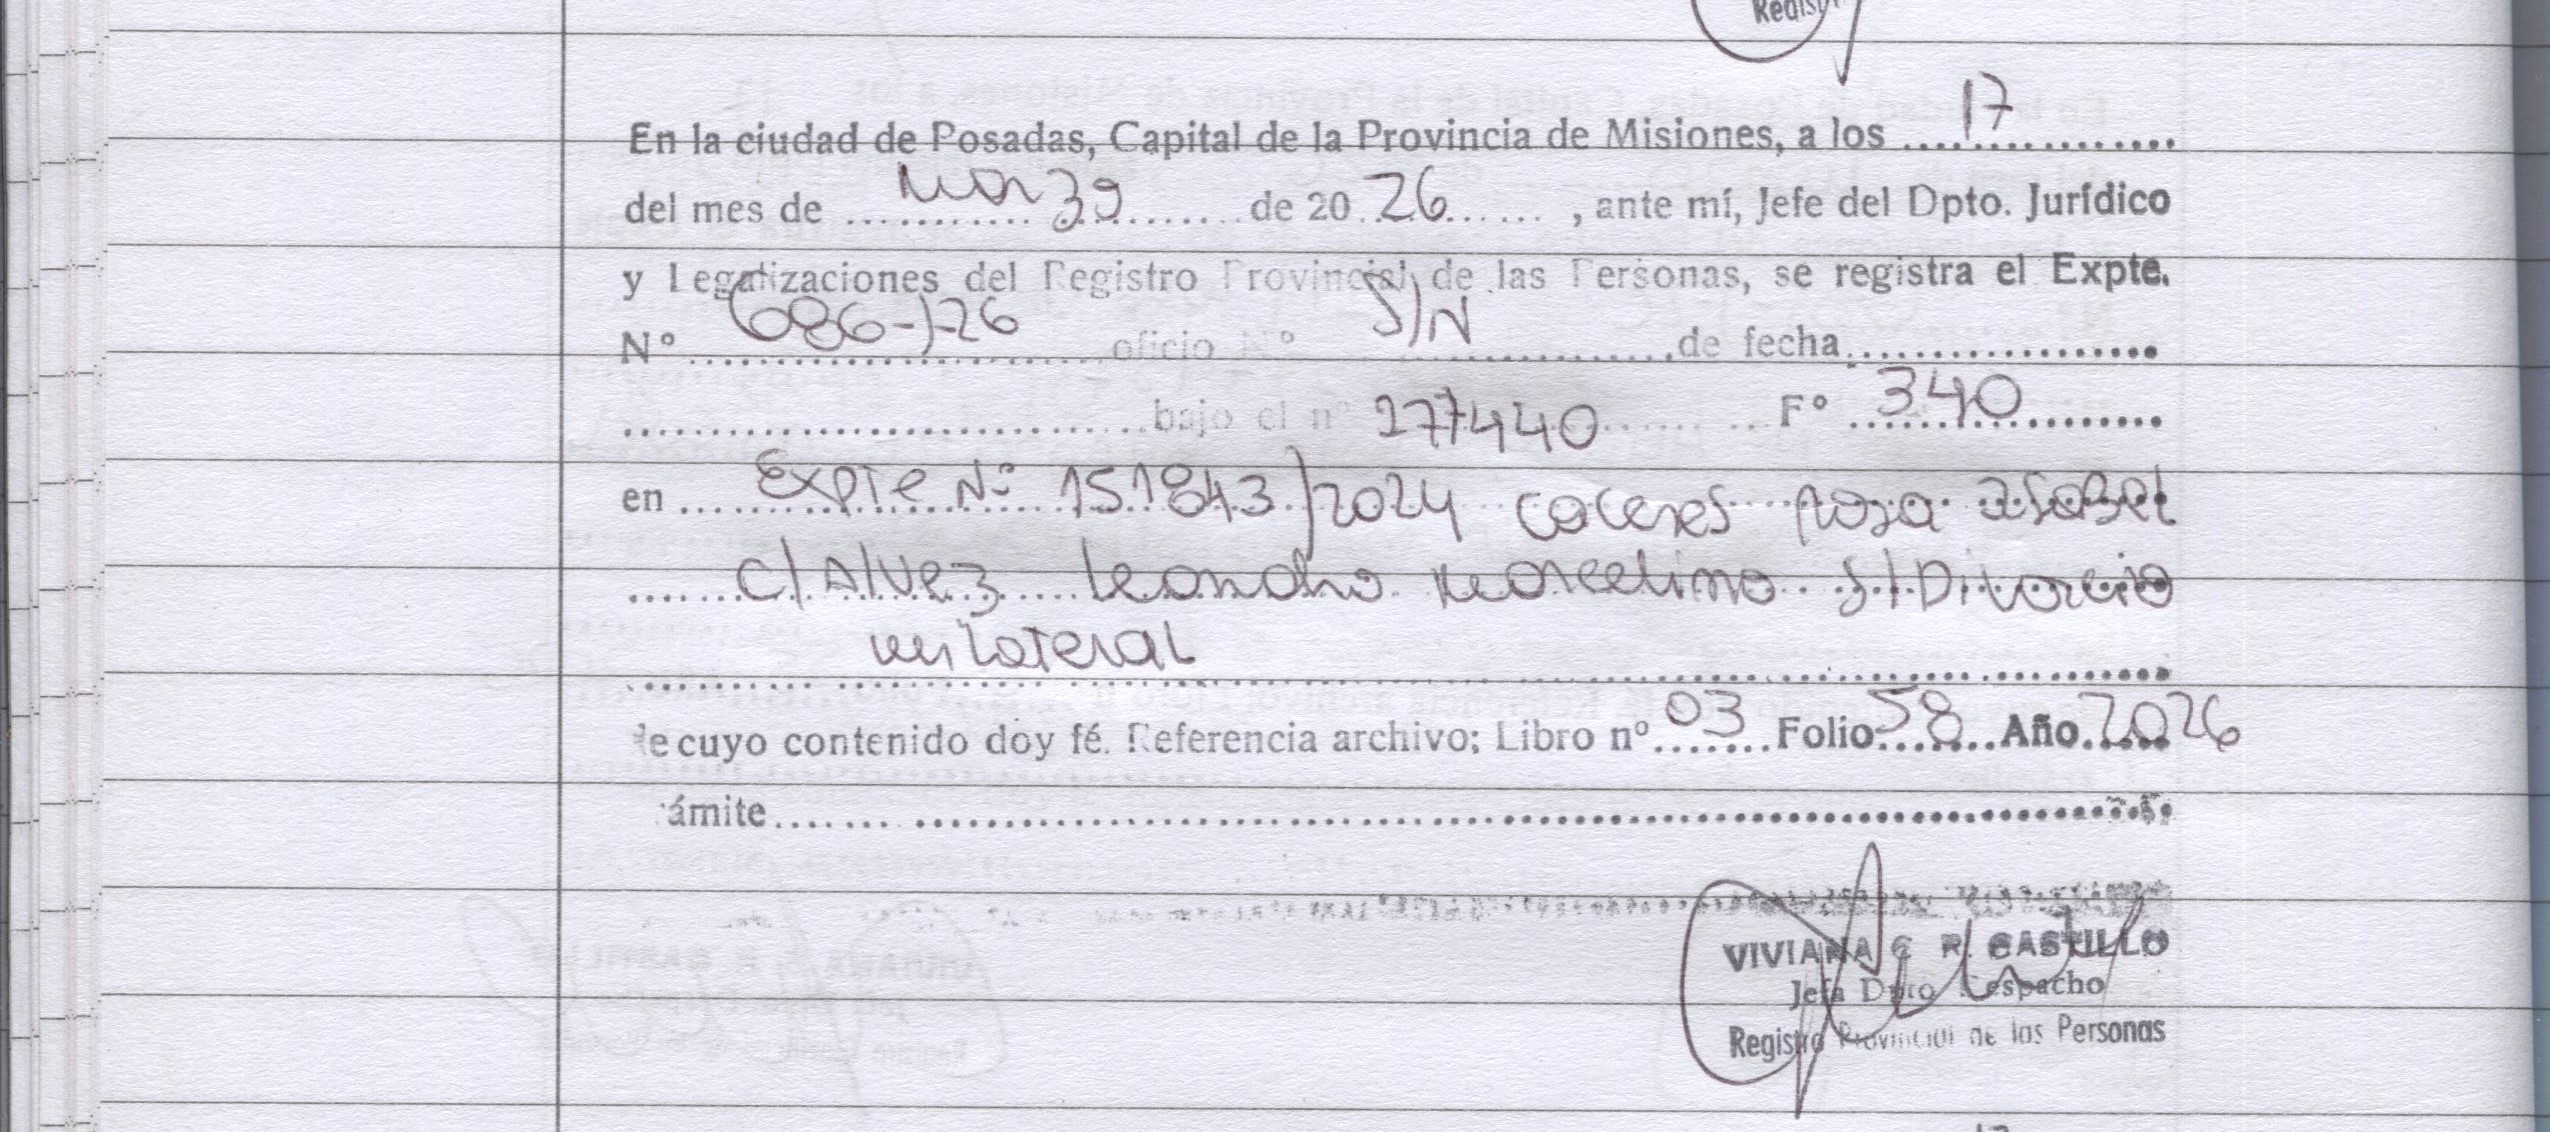 Regist
En la ciudad de Posadas, Capital de la Provincia de Misiones, a los 17
del mes de marzo de 2026, ante mí, Jefe del Dpto. Jurídico
y Legalizaciones del Registro Provincial de las Personas, se registra el Expte.
N° 686-J-26 oficio N° S/N de fecha
bajo el n° 277440 F° 340
en Expte N° 151843/2024 Caceres Rosa Isabel
c/ Alvez Leandro Marcelino S/ Divorcio
unilateral
de cuyo contenido doy fé. Referencia archivo: Libro n° 03 Folio 58 Año 2026
rámite
VIVIANA C R. CASTILLO
Jefa Dpto Despacho
Registro Provincial de las Personas